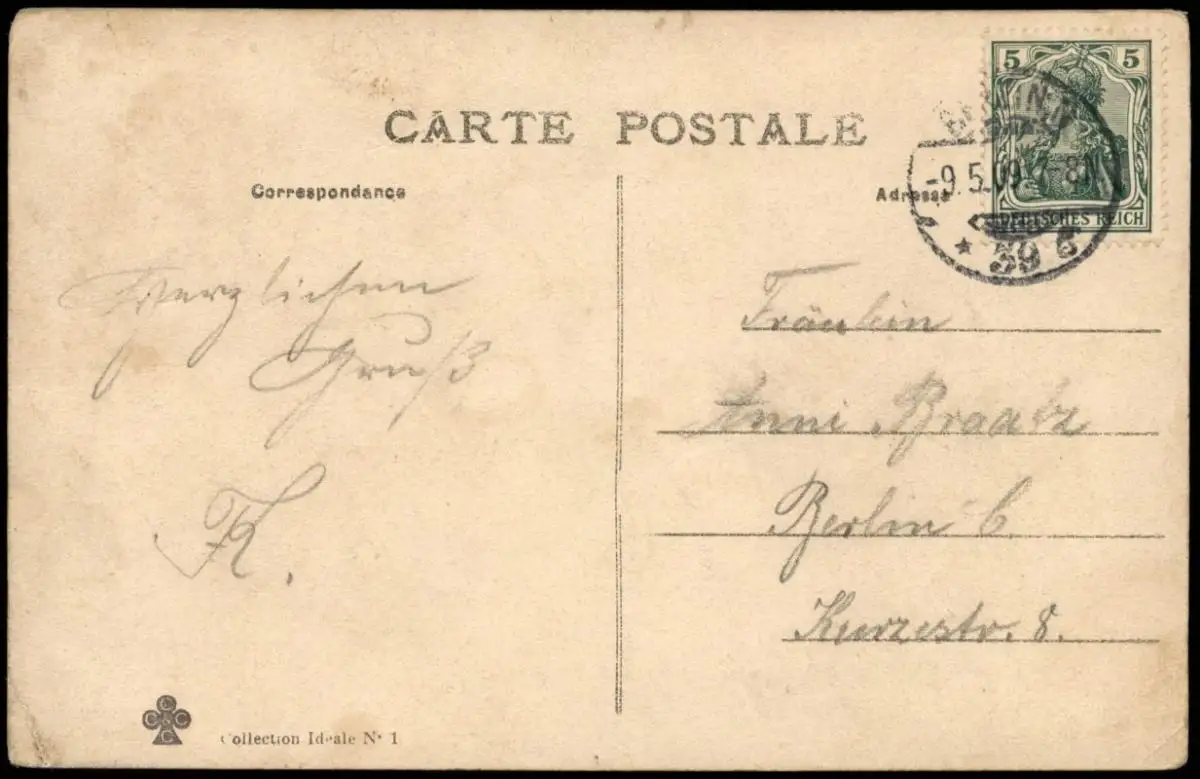 CARTE POSTALE
Correspondance
Adresse
5 5
DEUTSCHES REICH
BERLIN
-9.5.09 7-8N
* 59
Herzlichen
Gruß
K.
Fräulein
Anni Braatz
Berlin C.
Kurzestr. 8.
C C & C C
Collection Idéale N° 1